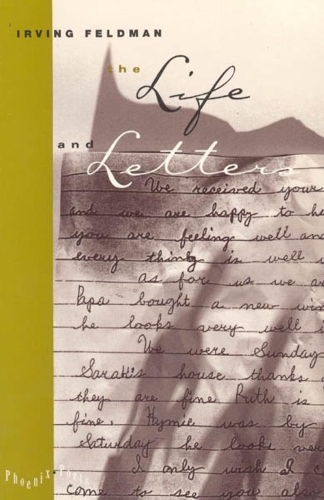 IRVING FELDMAN
the
Life
and
Letters
We received yours
and we are happy to he
you are feeling well and
every thing is well
as for us we ar
Papa bought a new win
he looks very well
We were Sunday
Sarah's house thanks
they are fine Ruth is
fine. Hymie was by
Saturday he looks ver
I only wish I c
come to see you also
Phoenix Poets